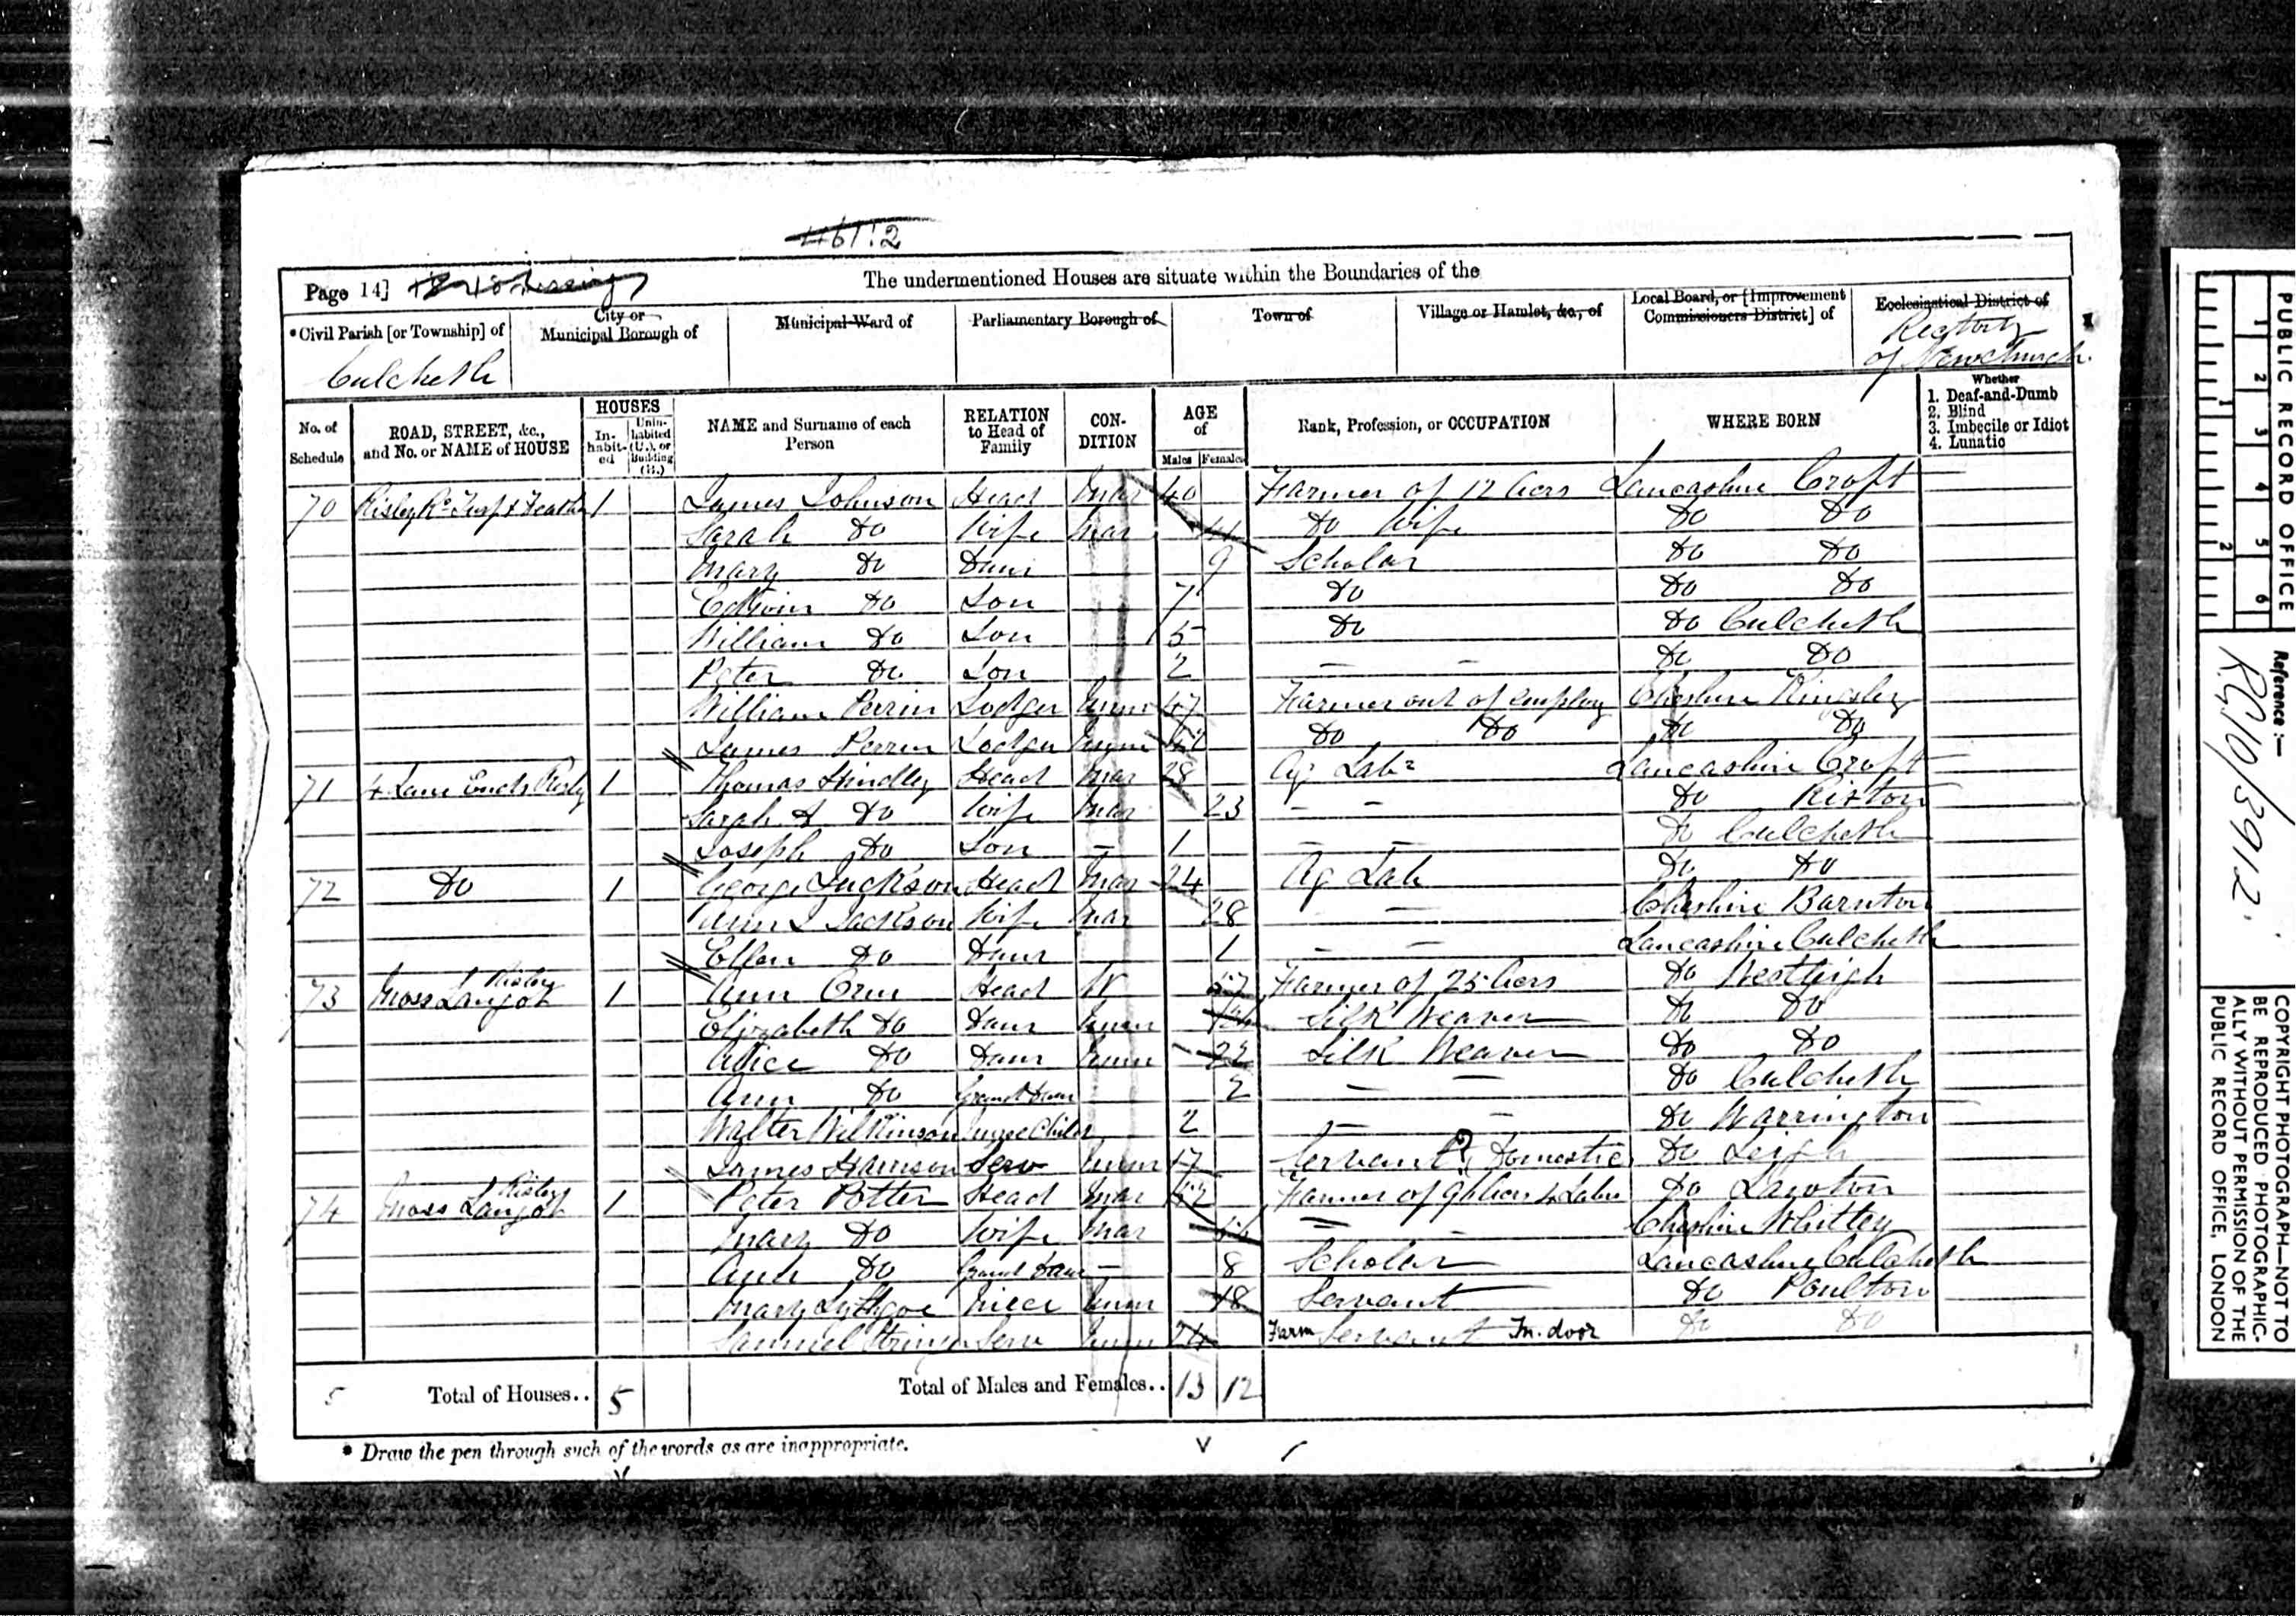 Page 14]
The undermentioned Houses are situate within the Boundaries of the
*Civil Parish [or Township] of
City or Municipal Borough of
Municipal Ward of
Parliamentary Borough of
Town of
Village or Hamlet, &c., of
Local Board, or [Improvement Commissioners District] of
Ecclesiastical District of
Culcheth
Rectory of Newchurch.
No. of Schedule
ROAD, STREET, &c., and No. or NAME of HOUSE
HOUSES
In-habit-ed
Unin-habited (U.), or Building (B.)
NAME and Surname of each Person
RELATION to Head of Family
CON-DITION
AGE of
Males
Females
Rank, Profession, or OCCUPATION
WHERE BORN
Whether
1. Deaf-and-Dumb
2. Blind
3. Imbecile or Idiot
4. Lunatic
70 Risley 1 James Johnson Head Mar 40 Farmer of 12 Acrs Lancashire Croft
Sarah Do Wife Mar Do Wife Do Do
Mary Do Daur 9 Scholar Do Do
Edwin Do Son 7 Do Do Do
William Do Son 5 Do Do Culcheth
Peter Do Son 2 — — Do Do
William Perrin Lodger Unm 47 Farmer out of employ Cheshire Kingsley
James Perrin Lodger Unm Do Do Do Do
71 4 Lane Ends Risley 1 Thomas Hindley Head Mar 28 Ag Labr Lancashire Croft
Sarah A Do Wife Mar 23 — — Do Rixton
Joseph Do Son — 1 — — Do Culcheth
72 Do 1 George Jackson Head Mar 24 Ag Lab Do Do
Ann Jackson Wife Mar 28 — Cheshire Barnton
Ellen Do Daur 1 — — Lancashire Culcheth
73 Moss Risley 1 Ann Orm Head W 57 Farmer of 25 Acrs Do Westleigh
Elizabeth Do Daur Unm Silk Weaver Do Do
Alice Do Daur Unm 22 Silk Weaver Do Do
Ann Do Grand Daur 2 — — Do Culcheth
Walter Wilkinson Nurse Child 2 — — Do Warrington
James Harrison Serv Unm 17 Servant ? Domestic Do Leigh
74 Moss Risley 1 Peter Potter Head Mar Farmer of 96 Acrs 4 Labrs Do Lawton
Mary Do Wife Mar — — Cheshire Whitley
Ann Do Grand Daur — 8 Scholar Lancashire Culcheth
Mary Lythgoe Niece Unm 18 Servant Do Poulton
Samuel Stringer Serv Unm 24 Farm Servant In-door Do Do
5 Total of Houses.. 5 Total of Males and Females.. 13 12
* Draw the pen through such of the words as are inappropriate.
PUBLIC RECORD OFFICE
1 2 3 4 5 6
1 2
Reference :—
RG 10/3912
COPYRIGHT PHOTOGRAPH—NOT TO
BE REPRODUCED PHOTOGRAPHIC-
ALLY WITHOUT PERMISSION OF THE
PUBLIC RECORD OFFICE, LONDON